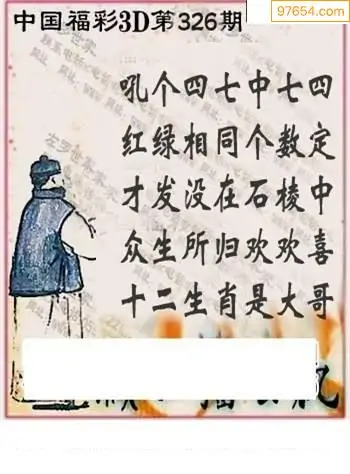 97654.com
中国福彩3D第326期
吼个四七中七四
红绿相同个数定
才发没在石棱中
众生所归欢欢喜
十二生肖是大哥